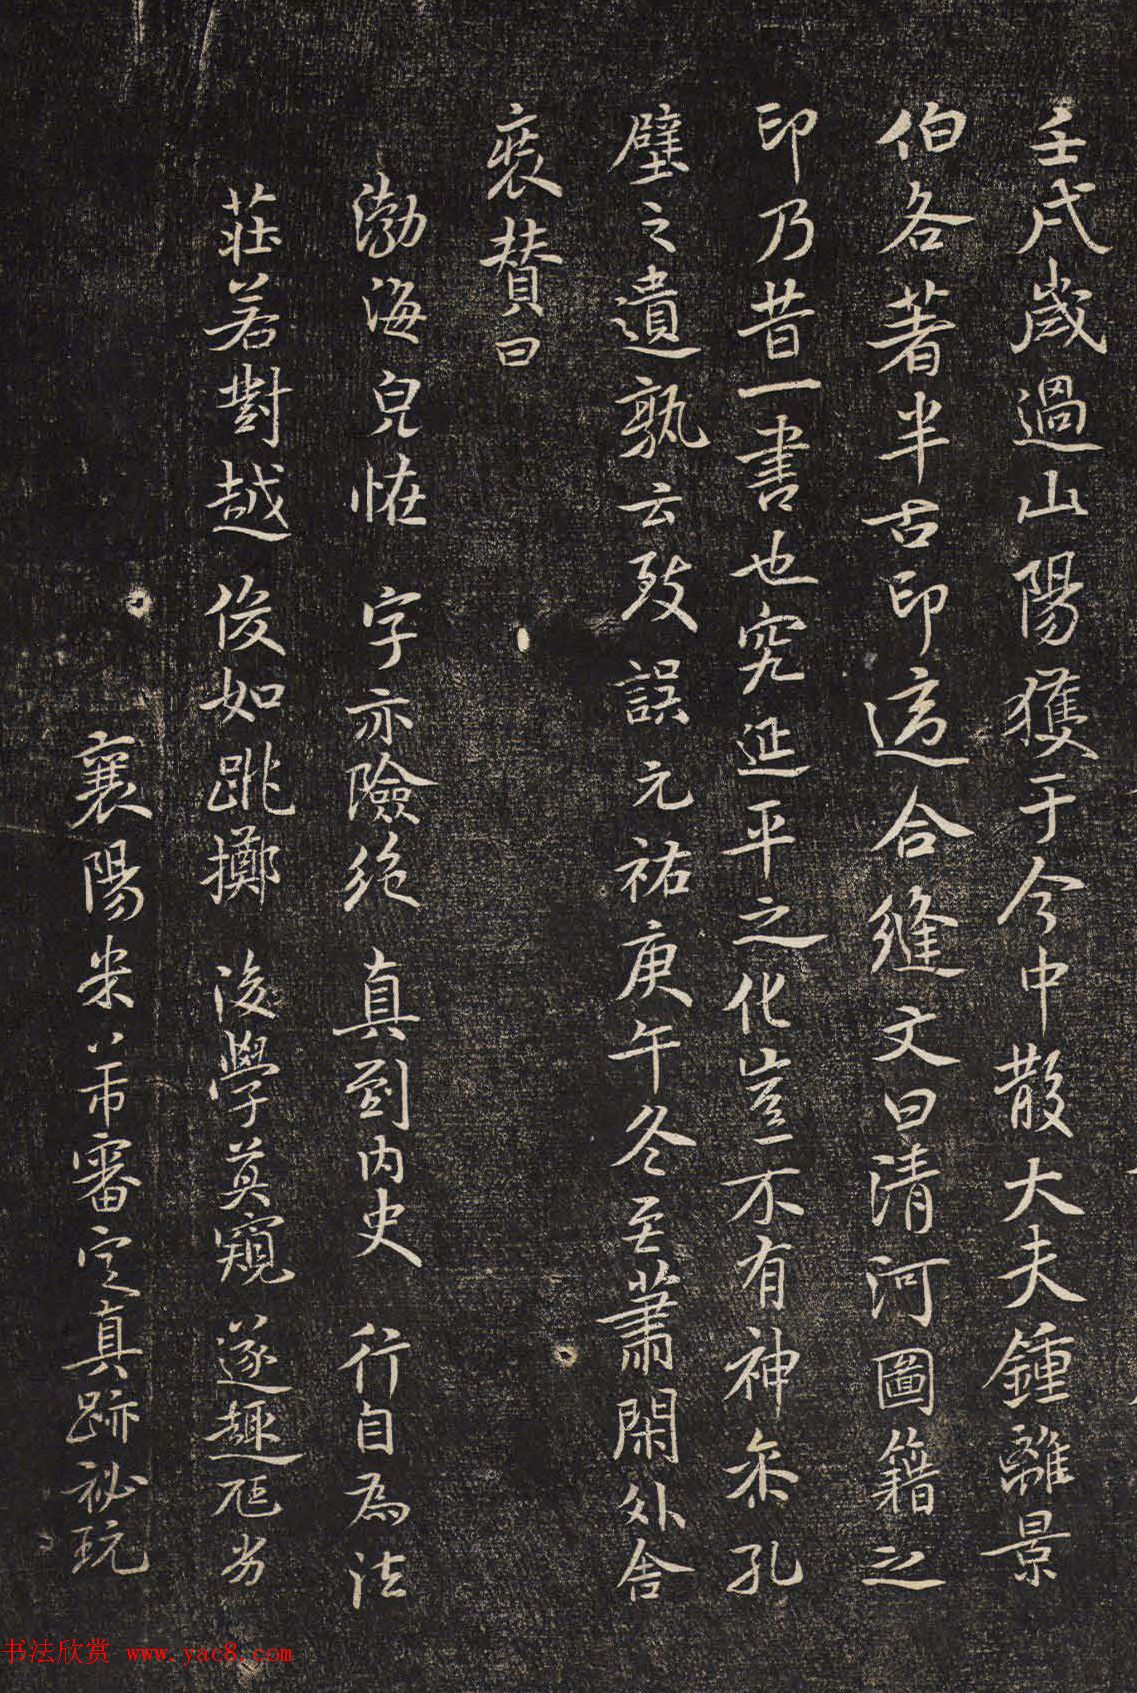 壬戌歲過山陽獲于今中散大夫鍾離景
伯各著半古印這合縫文曰清河圖籍之
印乃昔一書也究延平之化豈不有神尒孔
壁之遺孰云致誤元祐庚午冬至蕭閑外舍
裝贊曰
渤海皃恠 字亦險絶 真到内史 行自為法
莊若對越 俊如跳擲 後學莫窺 遂趣尫劣
襄陽米芾審定真跡祕玩
书法欣赏 www.yac8.com